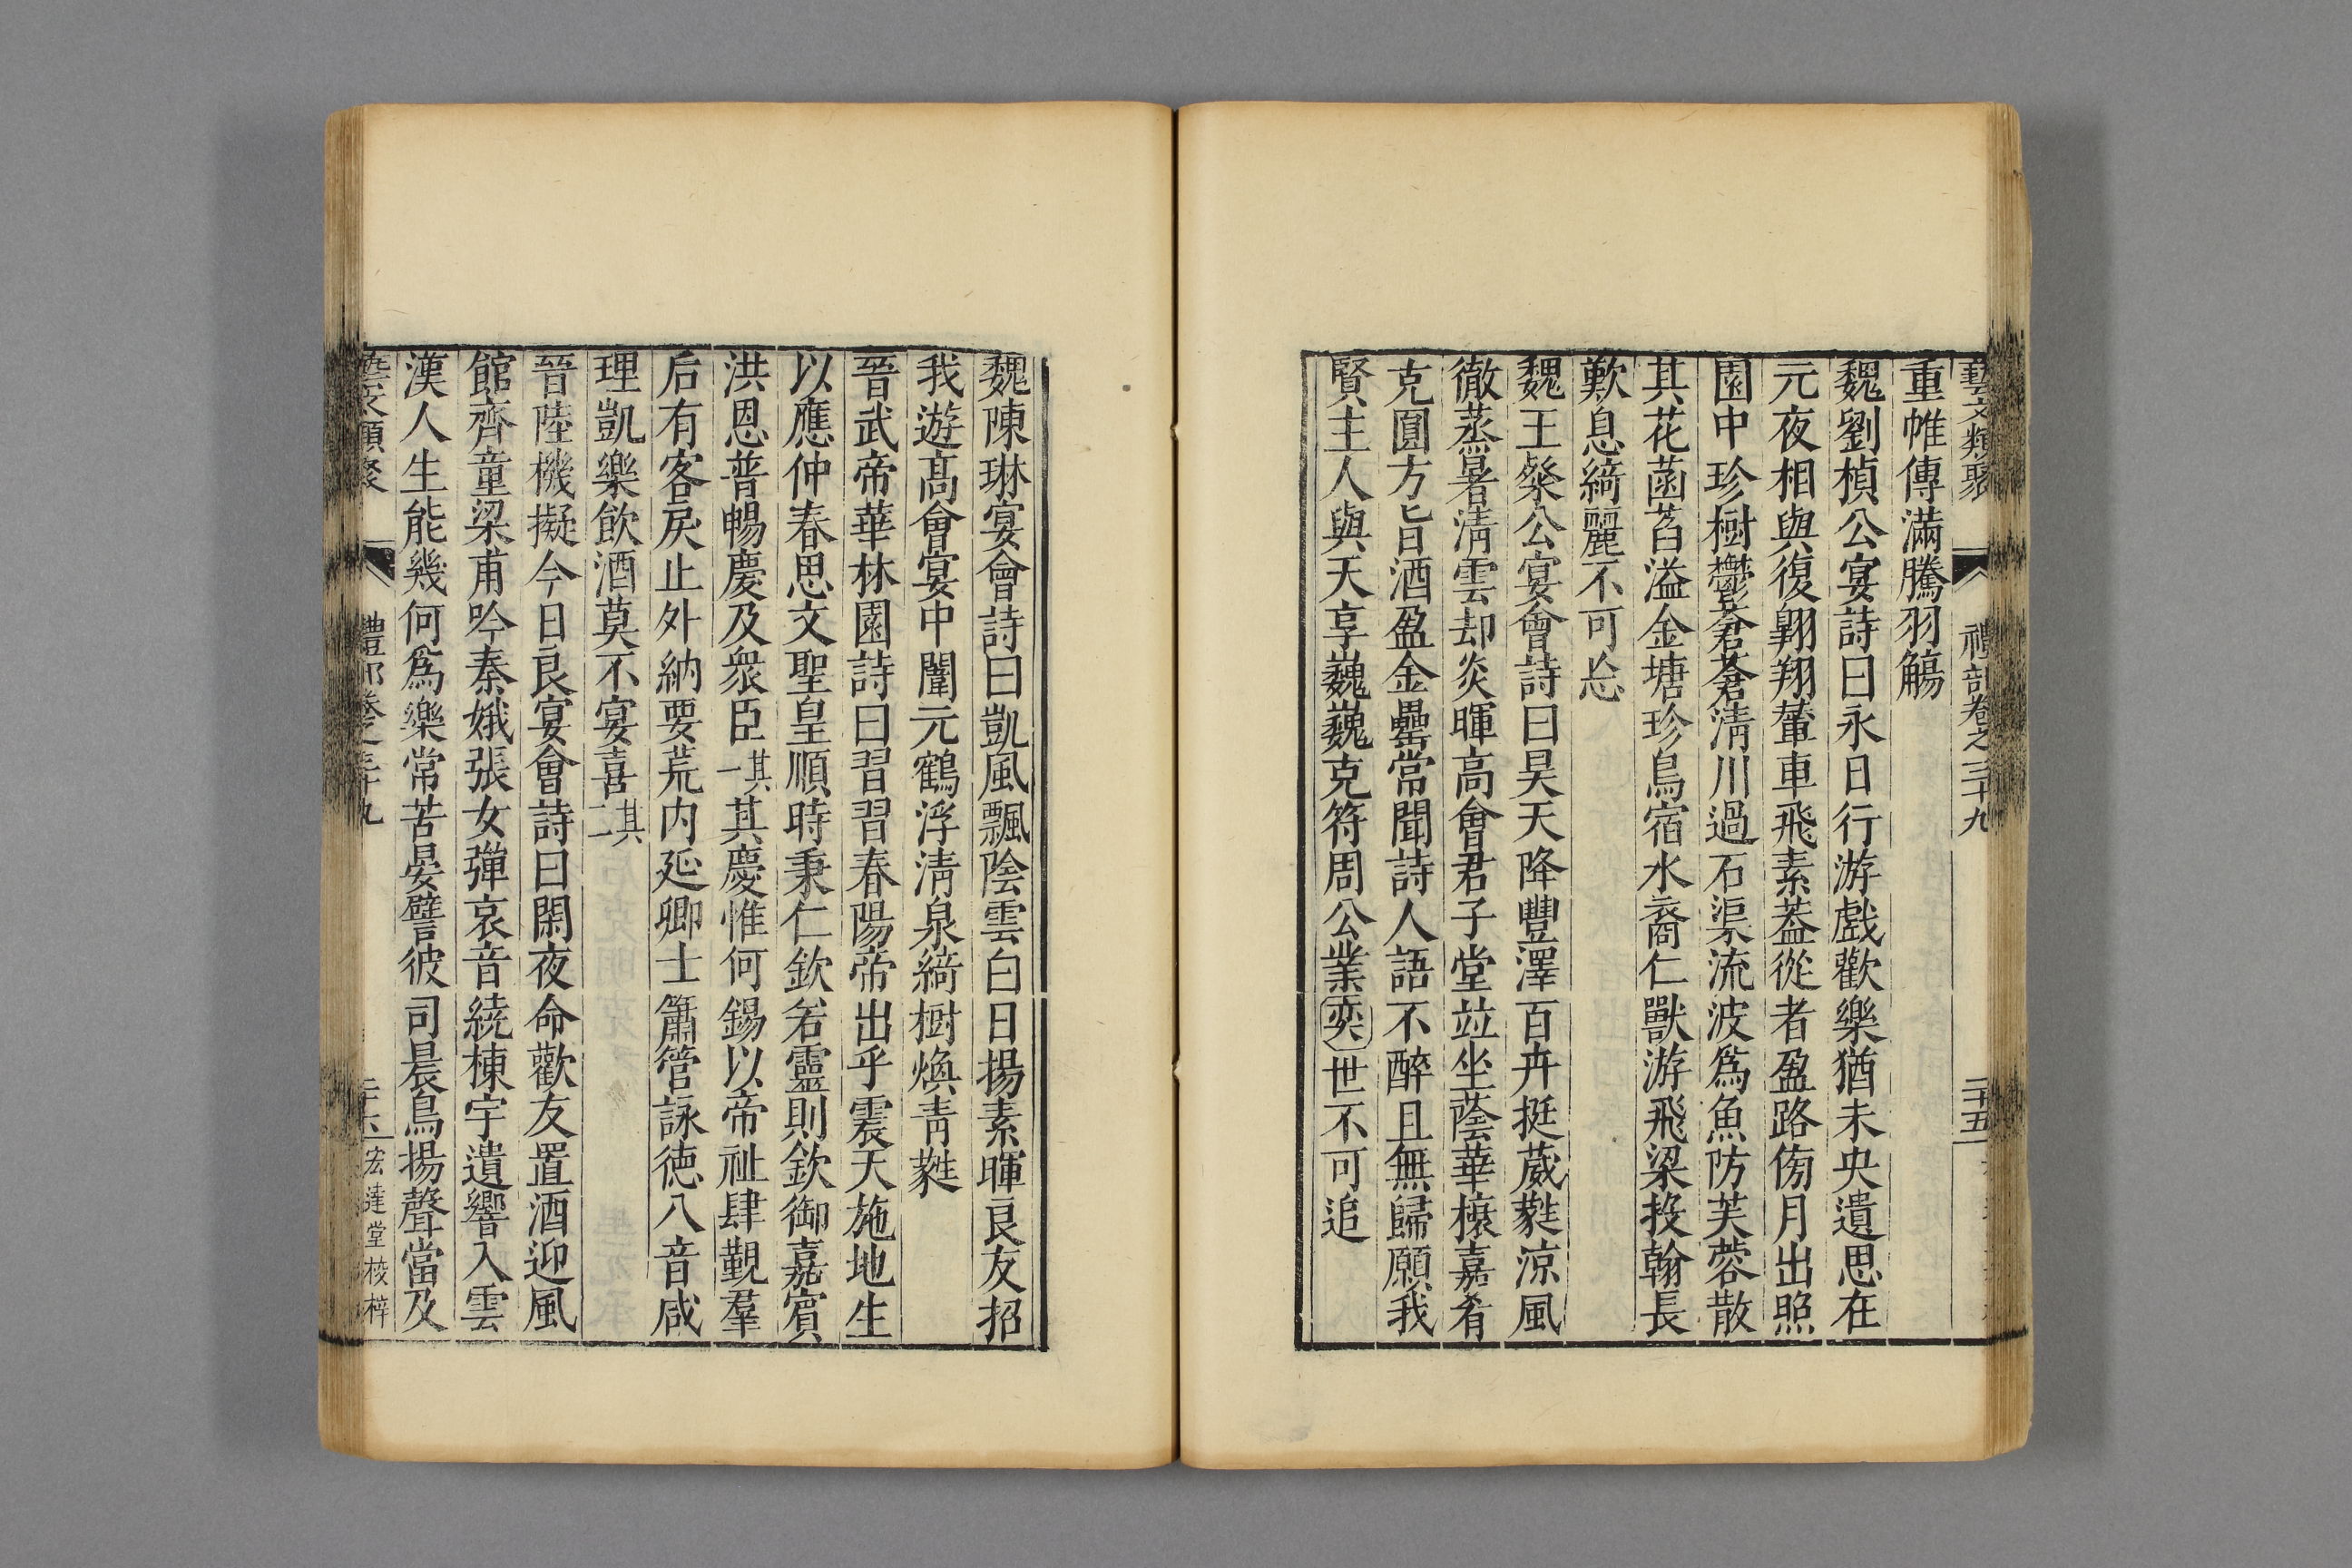 藝文類聚 禮部卷之三十九 二十五
重帷傳滿騰羽觴
魏劉楨公宴詩曰永日行游戲歡樂猶未央遺思在
元夜相與復翺翔輦車飛素葢從者盈路傍月出照
園中珍樹鬱蒼蒼淸川過石渠流波爲魚防芙蓉散
其花菡萏溢金塘珍鳥宿水裔仁獸游飛梁投翰長
歎息綺麗不可忘
魏王粲公宴會詩曰昊天降豐澤百卉挺葳蕤涼風
徹蒸暑淸雲却炎暉高會君子堂竝坐蔭華榱嘉肴
克圓方旨酒盈金罍常聞詩人語不醉且無歸願我
賢主人與天享巍巍克符周公業奕世不可追
魏陳琳宴會詩曰凱風飄陰雲白日揚素暉良友招
我遊髙會宴中闈元鶴浮淸泉綺樹煥靑蕤
晉武帝華林園詩曰習習春陽帝出乎震天施地生
以應仲春思文聖皇順時秉仁欽若靈則飲御嘉賓
洪恩普暢慶及衆臣其一其慶惟何錫以帝祉肆覲羣
后有客戾止外納要荒内延卿士簫管詠德八音咸
理凱樂飲酒莫不宴喜其二
晉陸機擬今日良宴會詩曰閑夜命歡友置酒迎風
館齊童梁甫吟秦娥張女彈哀音繞棟宇遺響入雲
漢人生能幾何爲樂常苦晏譬彼司晨鳥揚聲當及
藝文類聚 禮部卷之三十九 二十六 宏達堂校梓